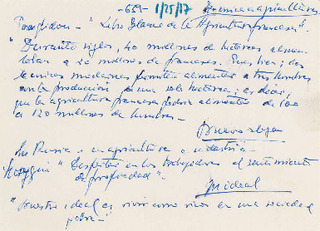 -665- 1/25/67 Técnica agricultura
"Libro Blanco de la Agricultura francesa".
"Durante siglos, 40 millones de hectáreas alimen-
taban a 20 millones de franceses. Pues bien; las
técnicas modernas permiten alimentar a tres hombres
con la producción de una sola hectárea; es decir,
que la agricultura francesa podría alimentar de 100
a 120 millones de hombres.—
En Rusia: en agricultura e industria
Kosygin "Despertar en los trabajadores el sentimiento
de propiedad".
Mi ideal
"nuestro ideal es vivir como ricos en una sociedad
pobre"